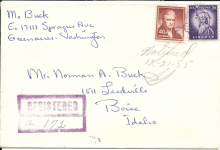 M. Buck
E. 17111 Sprague Ave
Greenacres, Washington
Notified
12-21-55
Mr. Norman A. Buck
1511 Leadville
Boise
Idaho
REGISTERED
172